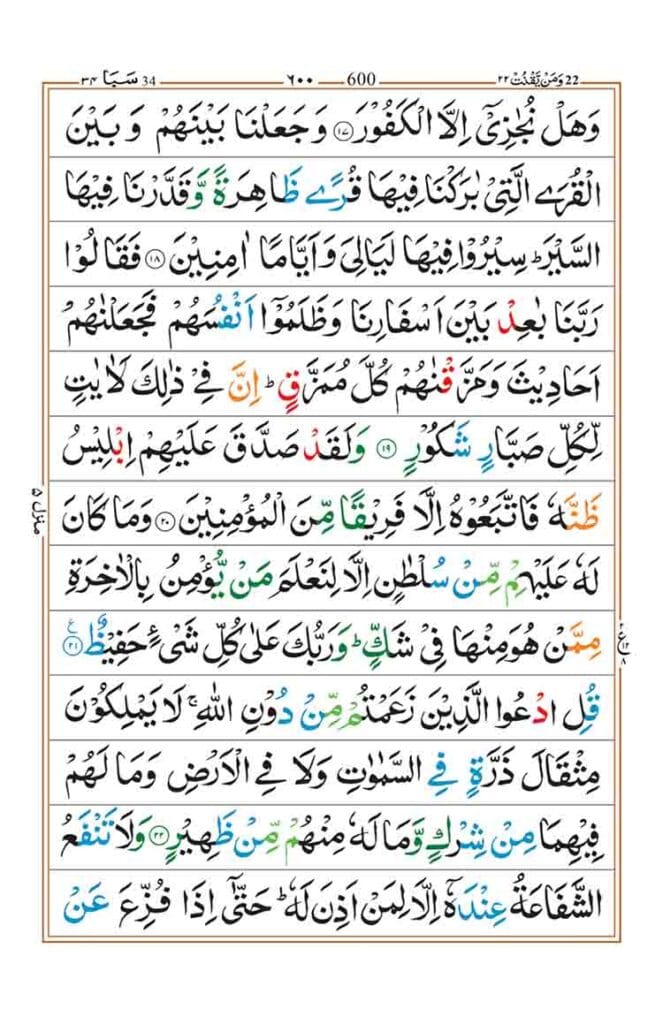 22 وَمَنْ يَّقْنُتْ ٢٢ 600 ٦٠٠ 34 سَبَا ٣٤
وَهَلْ نُجٰزِیْۤ اِلَّا الْكَفُوْرَ ﴿۱۷﴾ وَجَعَلْنَا بَيْنَهُمْ وَبَيْنَ
الْقُرَى الَّتِیْ بٰرَكْنَا فِيْهَا قُرًى ظَاهِرَةً وَّقَدَّرْنَا فِيْهَا
السَّيْرَ ؕ سِيْرُوْا فِيْهَا لَيَالِیَ وَاَيَّامًا اٰمِنِيْنَ ﴿۱۸﴾ فَقَالُوْا
رَبَّنَا بٰعِدْ بَيْنَ اَسْفَارِنَا وَظَلَمُوْۤا اَنْفُسَهُمْ فَجَعَلْنٰهُمْ
اَحَادِيْثَ وَمَزَّقْنٰهُمْ كُلَّ مُمَزَّقٍ ؕ اِنَّ فِیْ ذٰلِكَ لَاٰيٰتٍ
لِّكُلِّ صَبَّارٍ شَكُوْرٍ ﴿۱۹﴾ وَلَقَدْ صَدَّقَ عَلَيْهِمْ اِبْلِيْسُ
ظَنَّهٗ فَاتَّبَعُوْهُ اِلَّا فَرِيْقًا مِّنَ الْمُؤْمِنِيْنَ ﴿۲۰﴾ وَمَا كَانَ
لَهٗ عَلَيْهِمْ مِّنْ سُلْطٰنٍ اِلَّا لِنَعْلَمَ مَنْ يُّؤْمِنُ بِالْاٰخِرَةِ
مِمَّنْ هُوَ مِنْهَا فِیْ شَكٍّ ؕ وَرَبُّكَ عَلٰى كُلِّ شَیْءٍ حَفِيْظٌ ﴿۲۱﴾ ع
قُلِ ادْعُوا الَّذِيْنَ زَعَمْتُمْ مِّنْ دُوْنِ اللّٰهِ ۚ لَا يَمْلِكُوْنَ
مِثْقَالَ ذَرَّةٍ فِی السَّمٰوٰتِ وَلَا فِی الْاَرْضِ وَمَا لَهُمْ
فِيْهِمَا مِنْ شِرْكٍ وَّمَا لَهٗ مِنْهُمْ مِّنْ ظَهِيْرٍ ﴿۲۲﴾ وَلَا تَنْفَعُ
الشَّفَاعَةُ عِنْدَهٗۤ اِلَّا لِمَنْ اَذِنَ لَهٗ ؕ حَتّٰۤى اِذَا فُزِّعَ عَنْ
منزل ۵